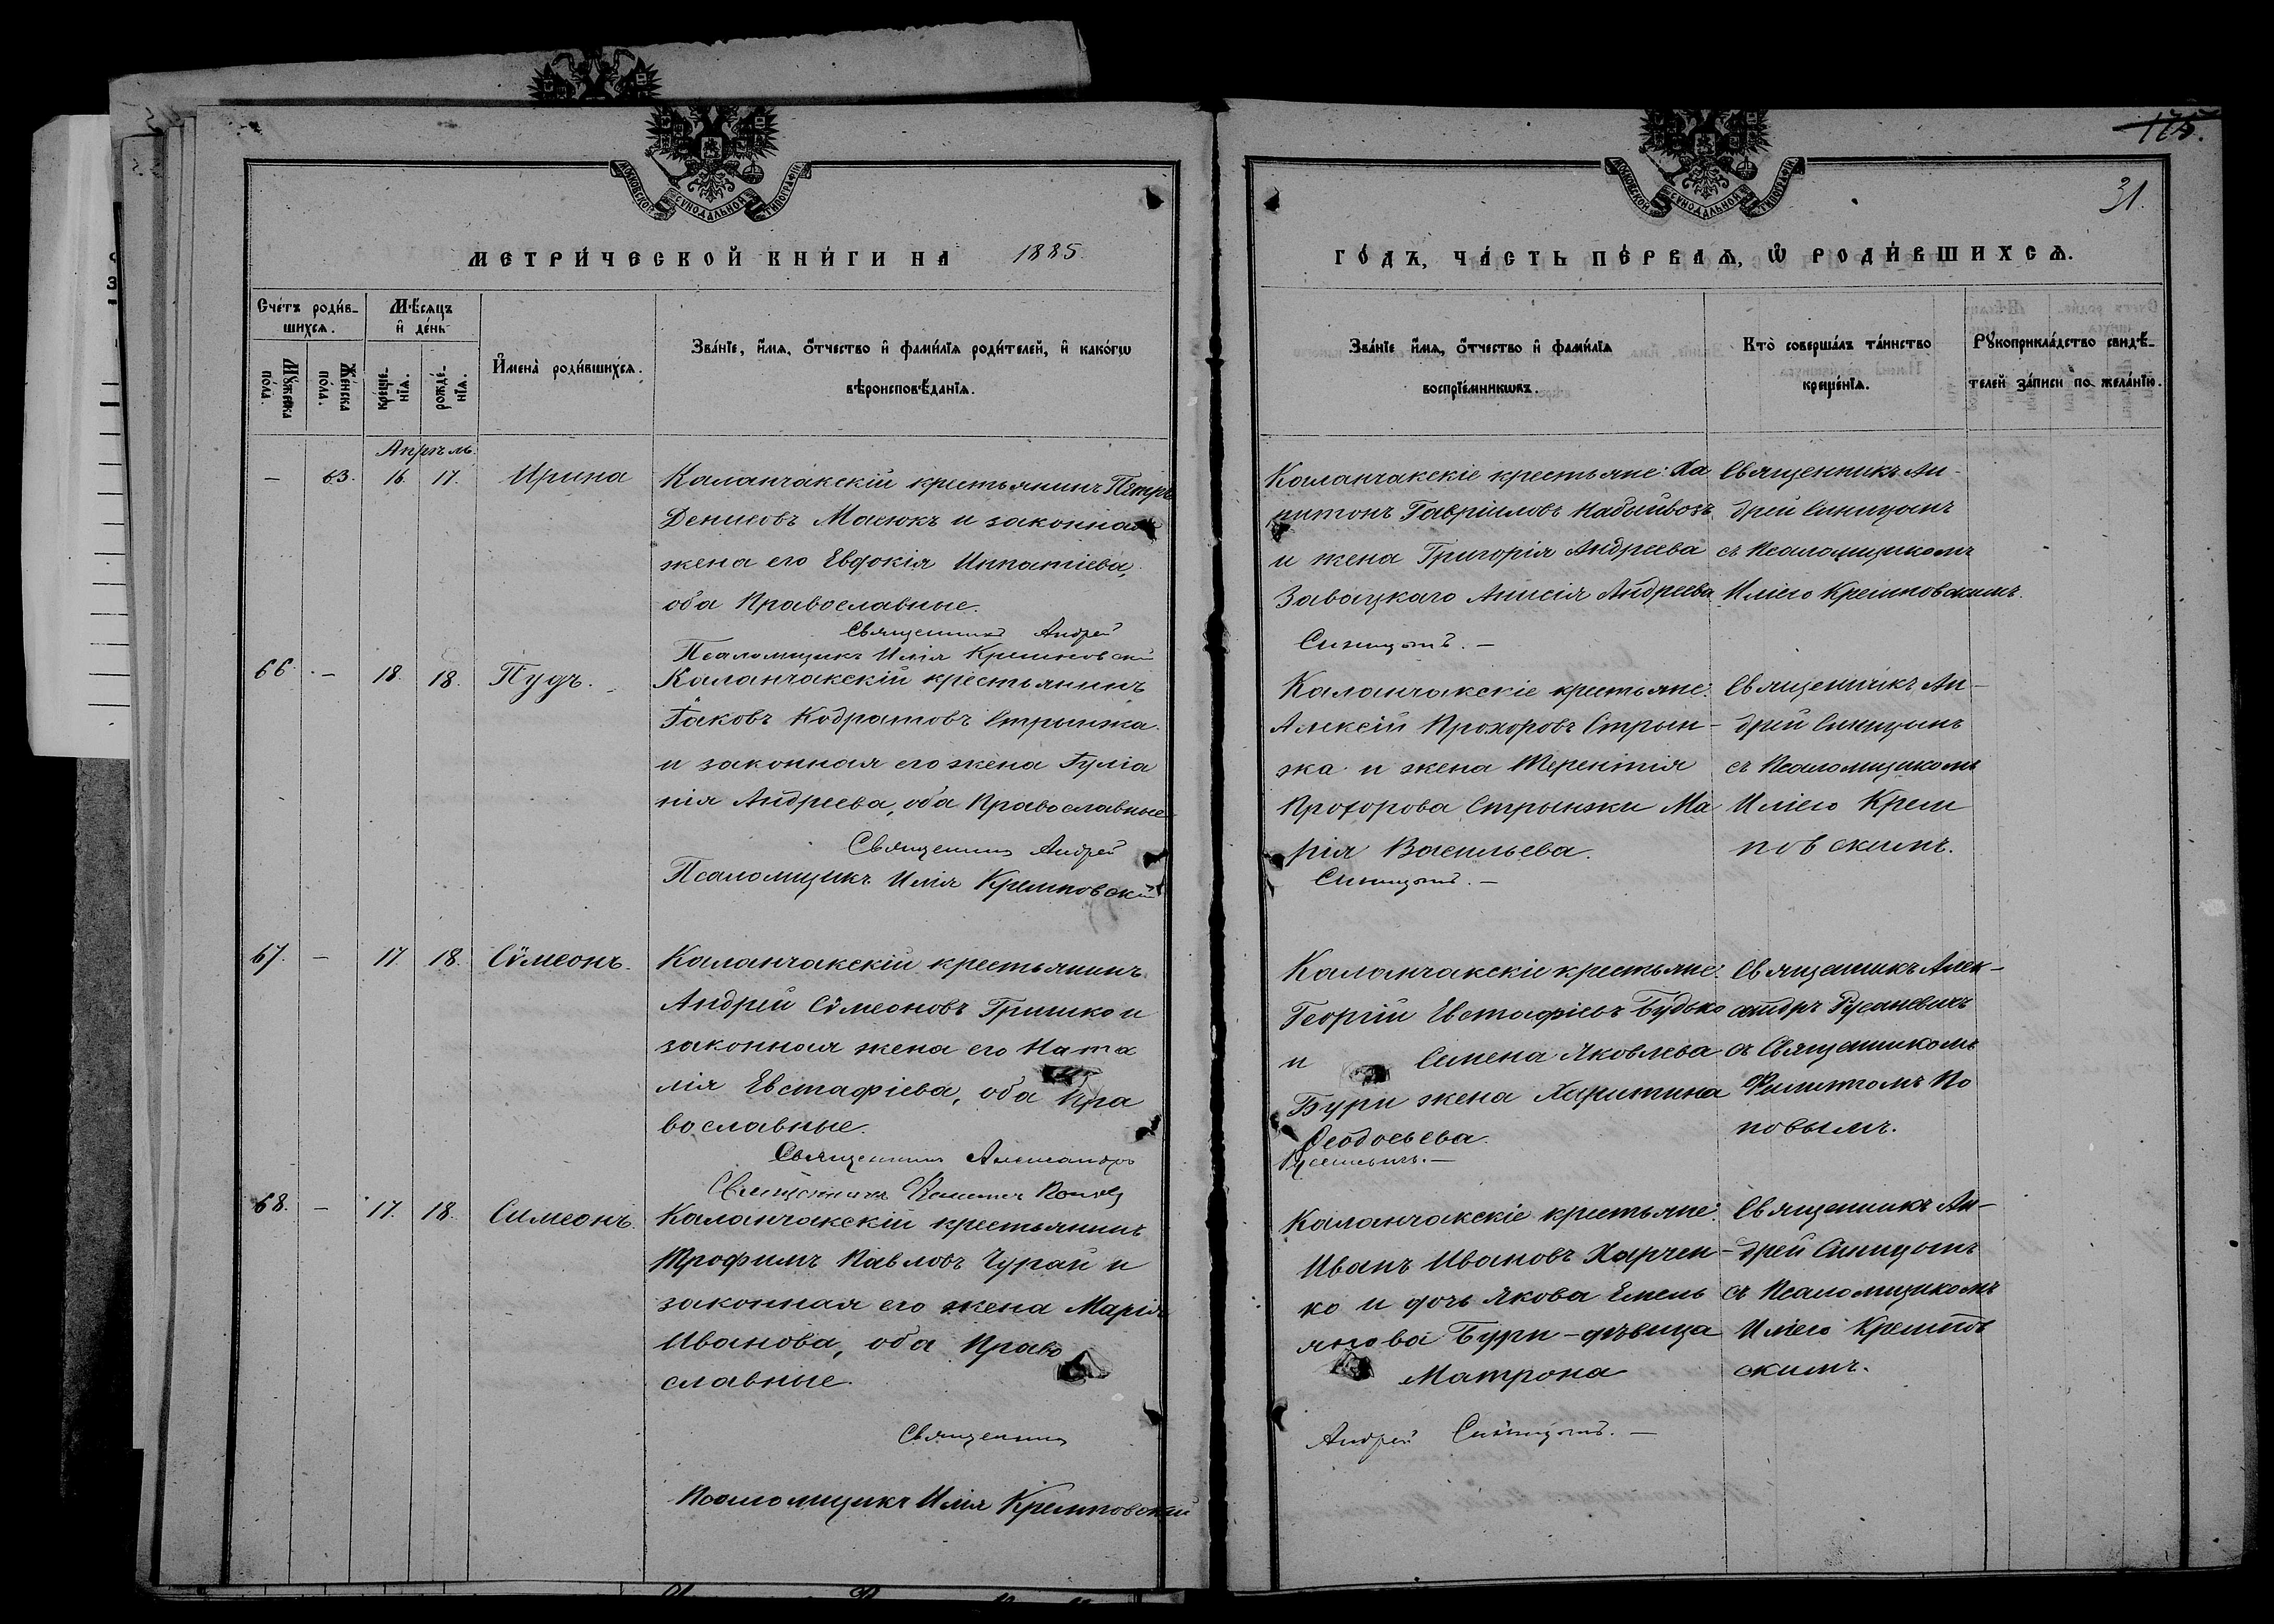 175.
31.
МОСКОВСКОЙ СѴНОДАЛЬНОЙ ТИПОГРАФІИ
МОСКОВСКОЙ СѴНОДАЛЬНОЙ ТИПОГРАФІИ
МЕТРИ́ЧЕСКОЙ КНИ́ГИ НА 1885.
ГО́ДЪ, ЧА́СТЬ ПЕ́РВАѦ, Ѿ РОДИ́ВШИХСѦ.
Сче́тъ роди́в-
шихся.
Му́жеска по́ла.
Же́нска по́ла.
Мѣ́сяцъ
и҆ де́нь
креще́-
нїѧ.
рожде́-
нїѧ.
И҆мена̀ роди́вшихся.
Зва́нїе, и҆́мя, о҆́тчество и҆ фами́лїя роди́телей, и҆ како́гѡ
вѣроисповѣ́данїя.
Зва́нїе и҆́мя, о҆́тчество и҆ фами́лїя
воспрїе́мникѡвъ.
Кто̀ соверша́лъ та́инство
креще́нїя.
Рꙋкоприкла́дство свидѣ́-
телей за́писи по жела́нїю.
Апрѣль.
— 63. 16. 17. Ирина
Каланчакскій крестьянинъ Петръ
Денисовъ Масюкъ и законная
жена его Евдокія Ипатіева,
оба Православные.
Священникъ Андрей
Псаломщикъ Илія Кремповскій
Каланчакскіе крестьяне: Ха
ритонъ Гавріиловъ Набыйвозъ
и жена Григорія Андреева
Завацкаго Анисія Андреева
Синицынъ. —
Священникъ Ан-
дрей Синицынъ
съ Псаломщикомъ
Иліею Кремповскимъ.
66. — 18. 18. Пудъ.
Каланчакскій крестьянинъ
Іаковъ Кодратовъ Стрынжа
и законная его жена Іуліа
нія Андреева, оба Православные
Священникъ Андрей
Псаломщикъ Илія Кремповскій
Каланчакскіе крестьяне:
Алексій Прохоровъ Стрын-
жа и жена Терентія
Прохорова Стрынжи Ма
рія Васильева.
Синицынъ. —
Священникъ Ан-
дрей Синицынъ
съ Псаломщикомъ
Иліею Крем
повскимъ.
67. — 17. 18. Сѵмеонъ.
Каланчакскій крестьянинъ
Андрей Сѵмеоновъ Гришко и
законная жена его Ната
лія Евстафіева, оба Пра
вославные.
Священникъ Александръ
Священникъ Филиппъ Поповъ
Каланчакскіе крестьяне:
Георгій Евстафіевъ Будько
и Семена Яковлева
Бури жена Харитина
Феодосьева.
Русаневичъ. —
Священникъ Алек-
сандръ Русаневичъ
съ Священникомъ
Филиппомъ По
повымъ.
68. — 17. 18. Симеонъ.
Каланчакскій крестьянинъ
Трофимъ Павловъ Чурай и
законная его жена Марія
Иванова, оба Право
славные.
Священникъ
Псаломщикъ Илія Кремповскій
Каланчакскіе крестьяне:
Иванъ Ивановъ Харчен-
ко и дочь Якова Емель
янова Бури — дѣвица
Матрона
Андрей Синицынъ. —
Священникъ Ан-
дрей Синицынъ
съ Псаломщикомъ
Иліею Кремпов
скимъ.